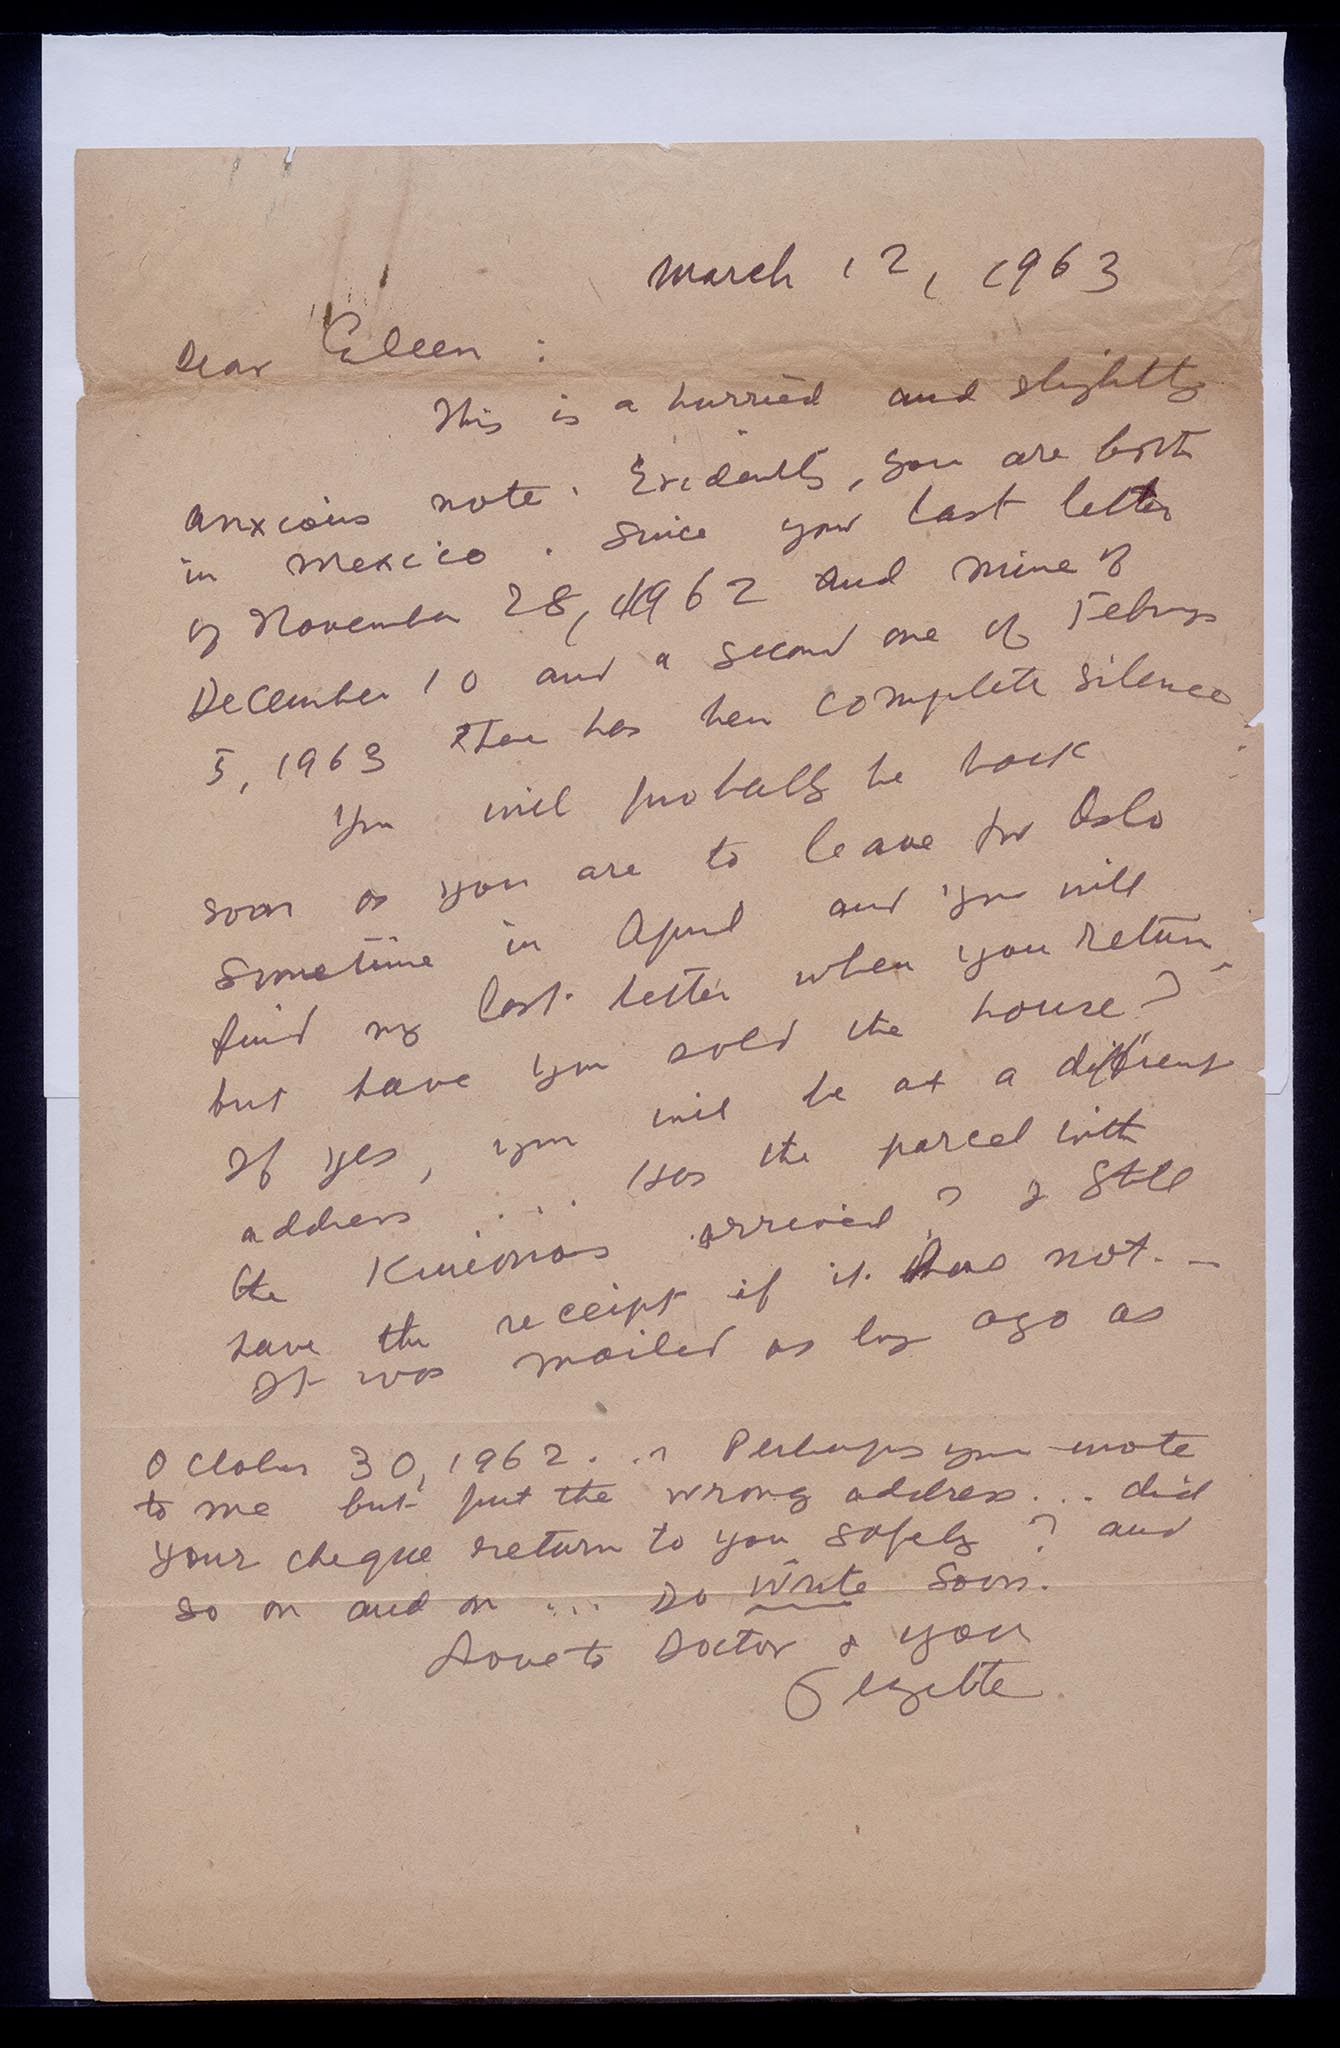 March 12, 1963
Dear Eileen :
This is a hurried and slightly
anxious note. Evidently, you are both
in Mexico. Since your last letter
of November 28, 1962 and mine of
December 10 and a second one of February
5, 1963 there has been complete silence.
You will probably be back
soon as you are to leave for Oslo
sometime in April and you will
find my last letter when you return,
but have you sold the house?
If yes, you will be at a different
address .... Has the parcel with
the arrived? I still
have the receipt if it has not. -
It was mailed as long ago as
October 30, 1962... Perhaps you wrote
to me but put the wrong address... did
your cheque return to you safely? and
so on and on ... Do write soon.
Love to Doctor & you